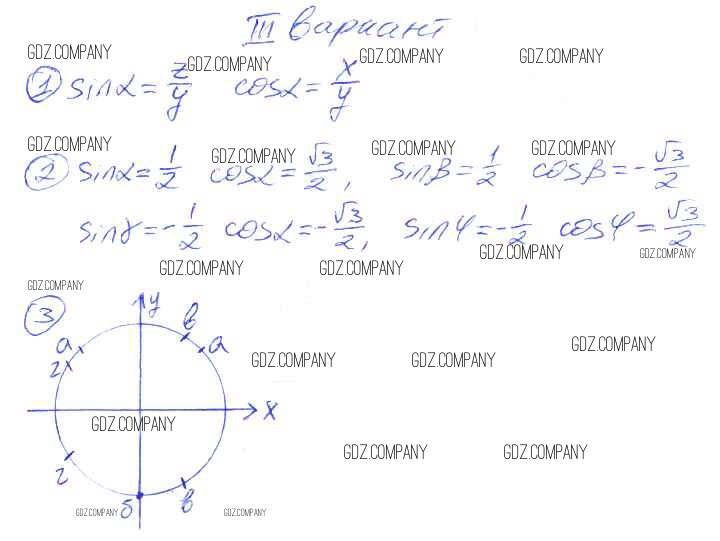 III Вариант
GDZ.COMPANY GDZ.COMPANY GDZ.COMPANY GDZ.COMPANY
① sinα = z/y cosα = x/y
GDZ.COMPANY GDZ.COMPANY GDZ.COMPANY GDZ.COMPANY
② sinα = 1/2 cosα = √3/2, sinβ = 1/2 cosβ = -√3/2
sinγ = -1/2 cosα = -√3/2, sinφ = -1/2 cosφ = √3/2
GDZ.COMPANY GDZ.COMPANY GDZ.COMPANY GDZ.COMPANY
GDZ.COMPANY
③ y
в
а а
г
GDZ.COMPANY GDZ.COMPANY GDZ.COMPANY
x
GDZ.COMPANY
GDZ.COMPANY GDZ.COMPANY
г
б в
GDZ.COMPANY GDZ.COMPANY